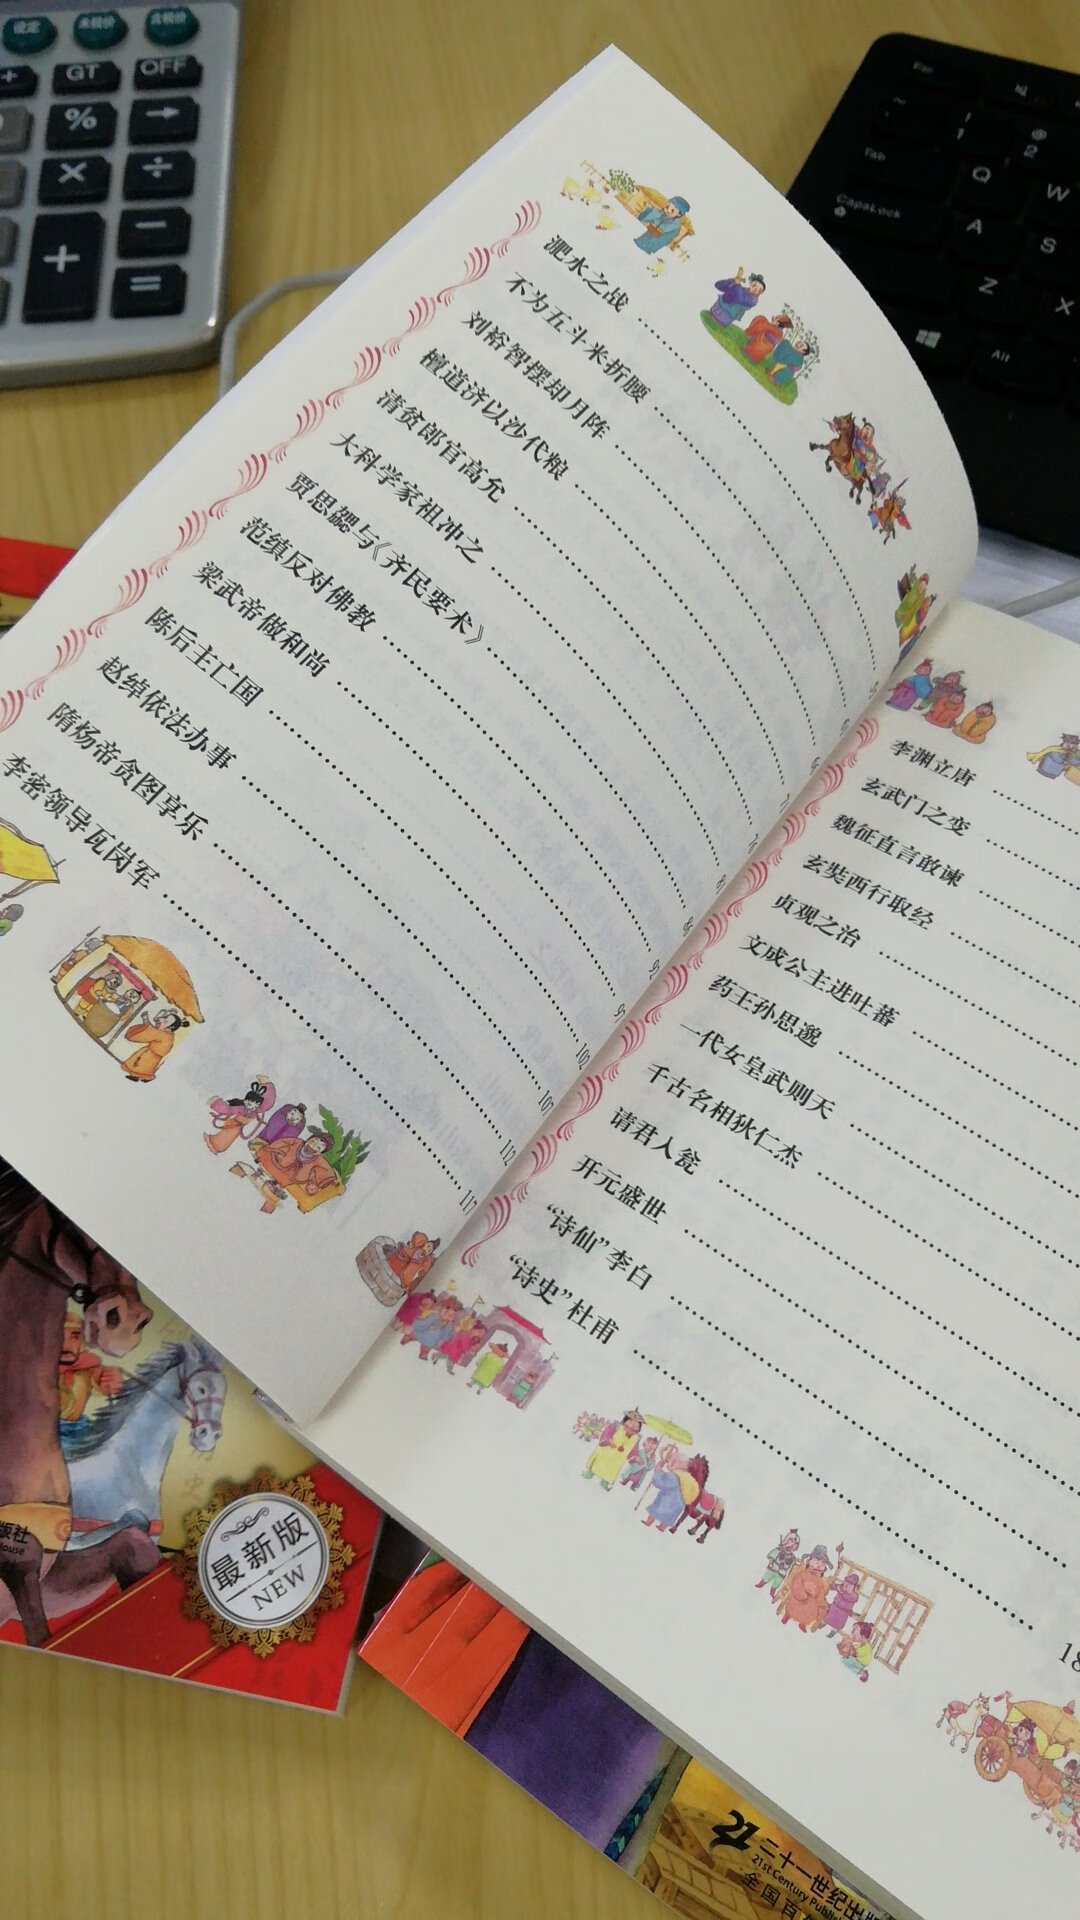 设定
未税价
含税价
GT
OFF
%
→
×
÷
+
−
=
Esc
~
1
@
2
Tab
Q
W
CapsLock
A
S
Z
X
Alt
淝水之战
不为五斗米折腰
刘裕智摆却月阵
檀道济以沙代粮
清贫郎官高允
大科学家祖冲之
贾思勰与《齐民要术》
范缜反对佛教
梁武帝做和尚 97
陈后主亡国 102
赵绰依法办事 107
隋炀帝贪图享乐 112
李密领导瓦岗军 117
李渊立唐
玄武门之变
魏征直言敢谏
玄奘西行取经
贞观之治
文成公主进吐蕃
药王孙思邈
一代女皇武则天
千古名相狄仁杰
请君入瓮
开元盛世
“诗仙”李白
“诗史”杜甫
版社
ouse
最新版
NEW
21 二十一世纪出版
21st Century Publish
全国百